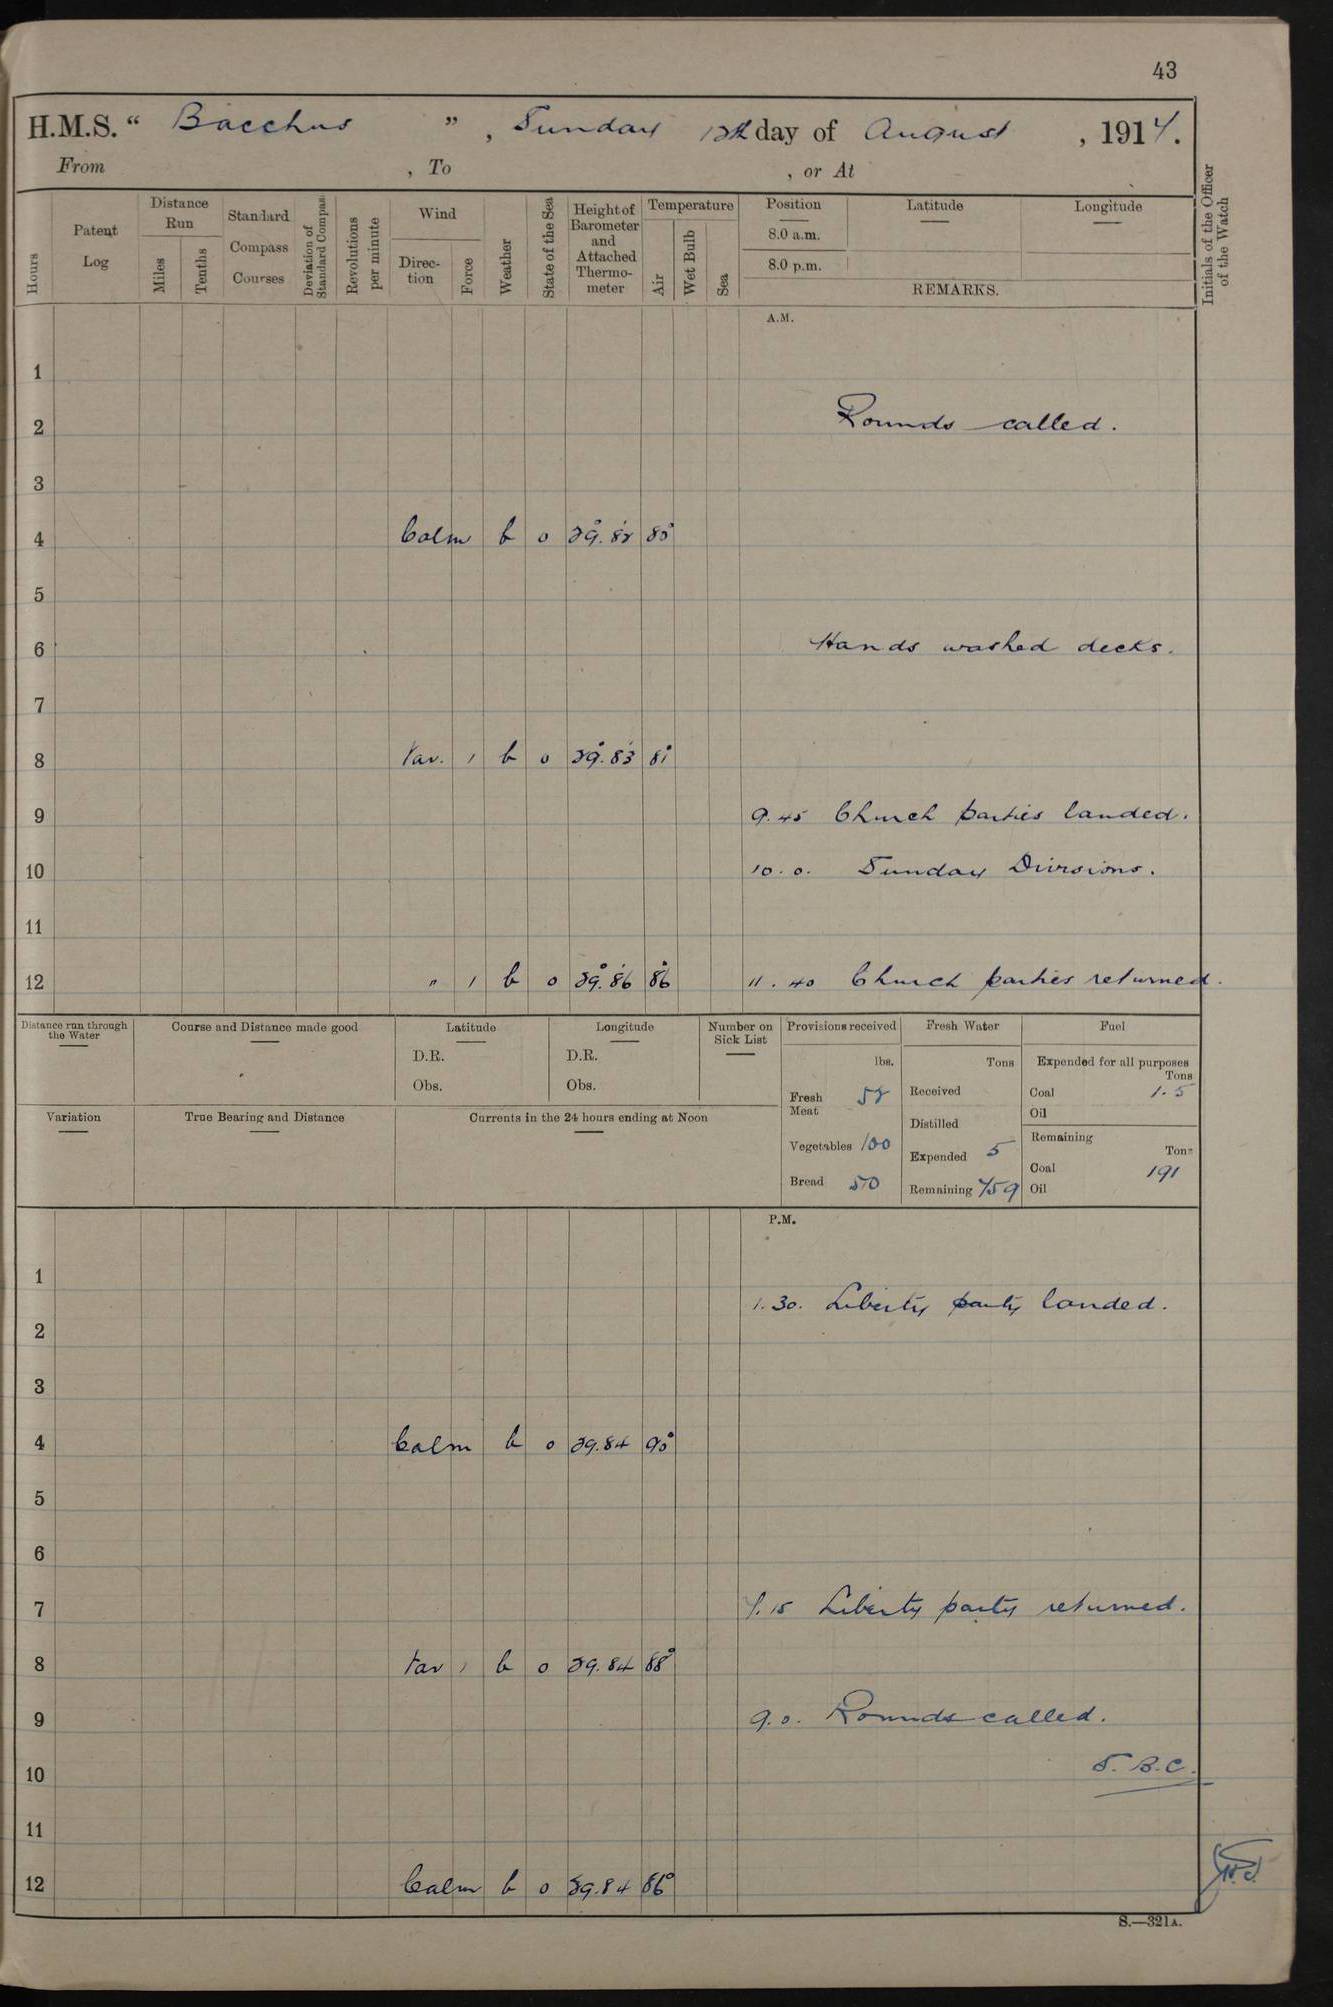 43
H.M.S. “ Bacchus ” , Sunday 12th day of August , 1917.
From , To , or At
Hours
Patent Log
Distance Run
Miles
Tenths
Standard Compass Courses
Deviation of Standard Compass
Revolutions per minute
Wind
Direction
Force
Weather
State of the Sea
Height of Barometer and Attached Thermometer
Temperature
Air
Wet Bulb
Sea
Position
8.0 a.m.
8.0 p.m.
Latitude
Longitude
REMARKS.
Initials of the Officer of the Watch
A.M.
1
2 Rounds called.
3
4 Calm b 0 29.82 80°
5
6 Hands washed decks.
7
8 Var. 1 b 0 29.83 81°
9 9.45 Church parties landed.
10 10.0. Sunday Divisions.
11
12 " 1 b 0 29.86 86° 11.40 Church parties returned.
Distance run through the Water
Course and Distance made good
Latitude
D.R.
Obs.
Longitude
D.R.
Obs.
Number on Sick List
Variation
True Bearing and Distance
Currents in the 24 hours ending at Noon
Provisions received
lbs.
Fresh Meat 58
Vegetables 100
Bread 50
Fresh Water
Tons
Received
Distilled
Expended 5
Remaining 759
Fuel
Expended for all purposes
Tons
Coal 1.5
Oil
Remaining
Tons
Coal 191
Oil
P.M.
1
1.30. Liberty party landed.
2
3
4 Calm b 0 29.84 90°
5
6
7 7.15 Liberty party returned.
8 Var 1 b 0 29.84 88°
9 9.0. Rounds called.
10 S.B.C.
11
12 Calm b 0 29.84 86°
S.—321A.